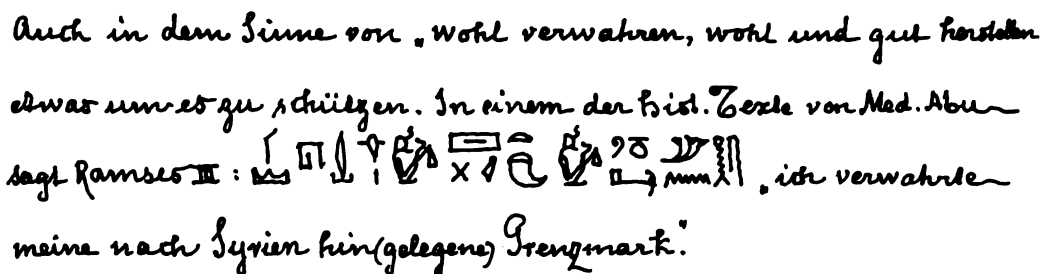 Auch in dem Sinne von „wohl verwahren, wohl und gut herstellen
etwas um es zu schützen. In einem der hist. Texte von Med. Abu
sagt Ramses III : „ich verwahrte
meine nach Syrien hin(gelegene) Grenzmark."